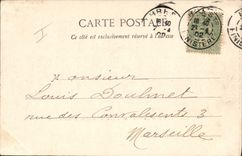 CARTE POSTALE
Ce côté est exclusivement réservé à l'adresse
Monsieur
Louis Doulmet
rue des Convalescents 3
Marseille